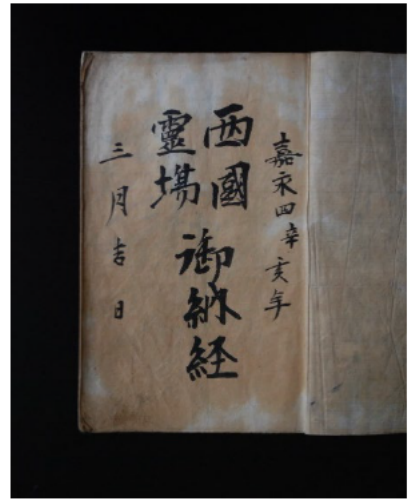 嘉永四辛亥年
西國
靈場
御納経
三月吉日